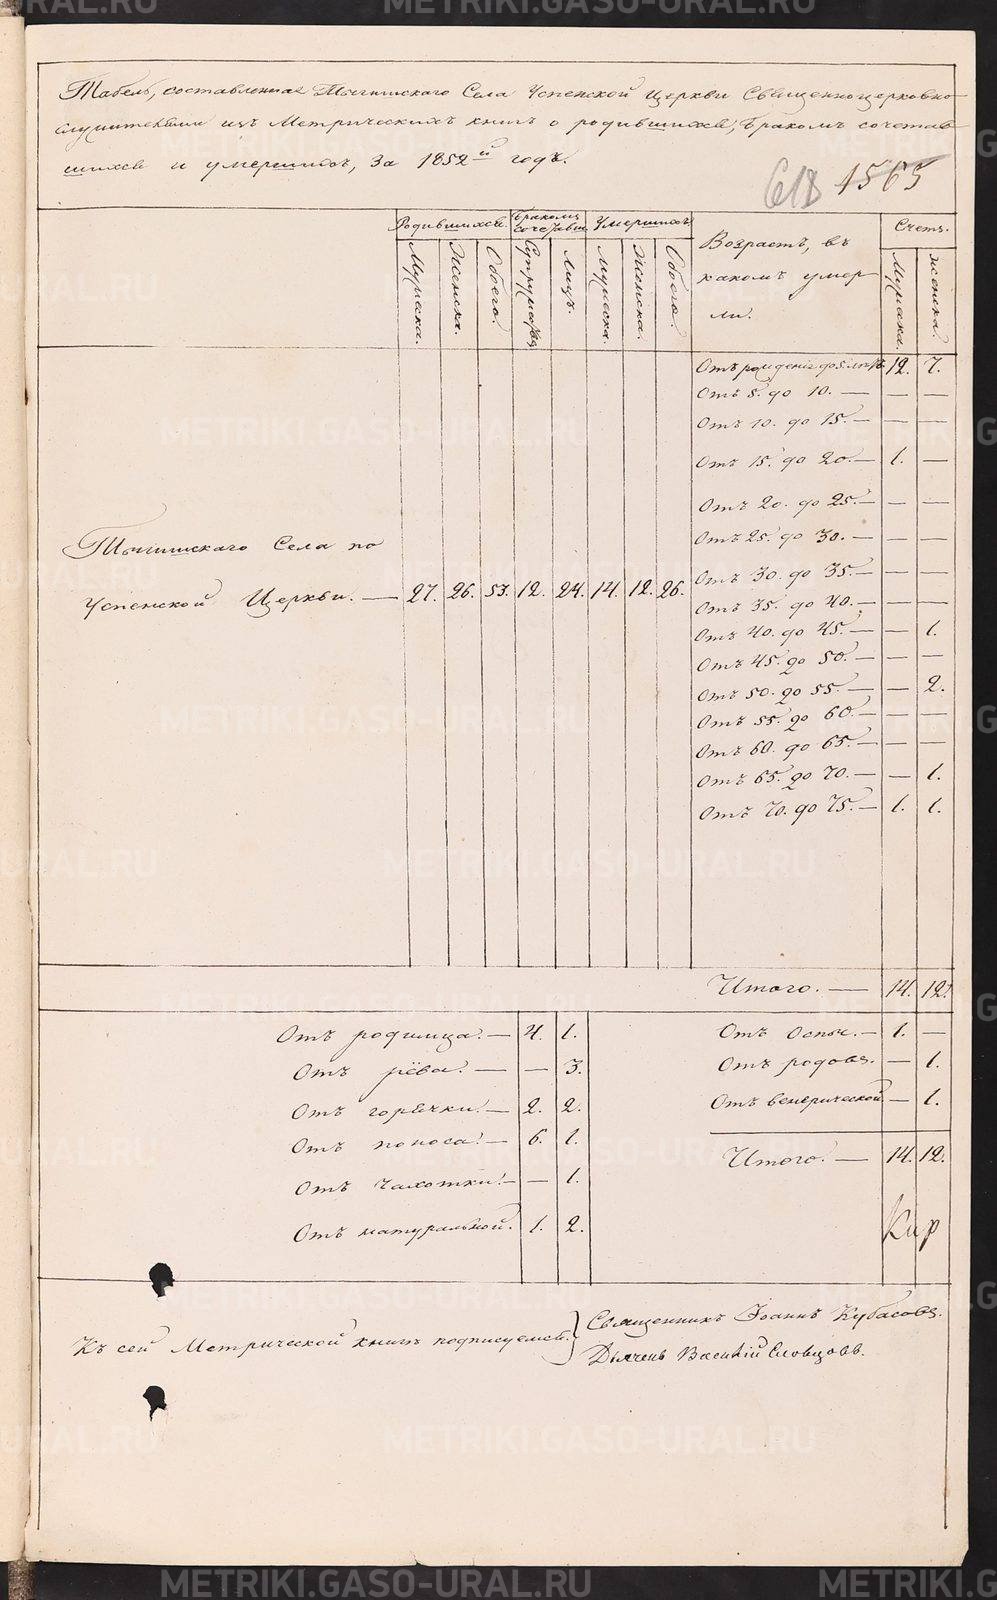 Табель, составленная Тычкинскаго Села Успенской Церкви Священноцерковно-
служителями изъ Метрическихъ книгъ о родившихся, бракомъ сочетав-
шихся и умершихъ, за 1852й годъ.
618 1565
Родившихся. Бракомъ сочетавш. Умершихъ. Возрастъ, въ какомъ умерли. Счетъ.
Мужеска. Женска. Обоего. Супружествъ Лицъ. Мужеска. Женска. Обоего. Мужска. Женска.
Отъ рожденiя до 5 лѣтъ 12. 7.
Отъ 5. до 10. — — —
Отъ 10. до 15. — — —
Отъ 15. до 20. — 1. —
Отъ 20. до 25. — — —
Отъ 25. до 30. — — —
Отъ 30. до 35. — — —
Отъ 35. до 40. — — —
Отъ 40. до 45. — — 1.
Отъ 45. до 50. — — —
Отъ 50. до 55. — — 2.
Отъ 55. до 60. — — —
Отъ 60. до 65. — — —
Отъ 65. до 70. — — 1.
Отъ 70. до 75. — 1. 1.
Села по
Успенской Церкви. — 27. 26. 53. 12. 24. 14. 12. 26.
Итого. — 14. 12.
Отъ родимца. — 4. 1.
Отъ рёва. — — 3.
Отъ горячки. — 2. 2.
Отъ поноса. — 6. 1.
Отъ чахотки. — — 1.
Отъ натуральной. 1. 2.
Отъ Оспы. — 1. —
Отъ родовъ. — 1.
Отъ венерической — 1.
Итого. — 14. 12.
Къ сей Метрической книгѣ подписуемся.
Священникъ Іоаннъ Кубасовъ.
Дьячекъ Василій Словцовъ.
METRIKI.GASO-URAL.RU